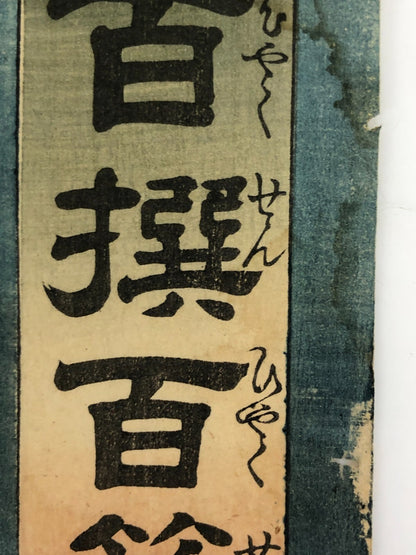 百撰百
ひやくせんひやく